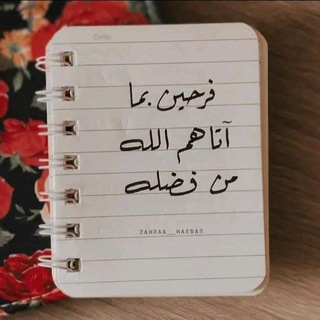 فرحين بما
آتاهم الله
من فضله
ZAHRAA__HAEDAR